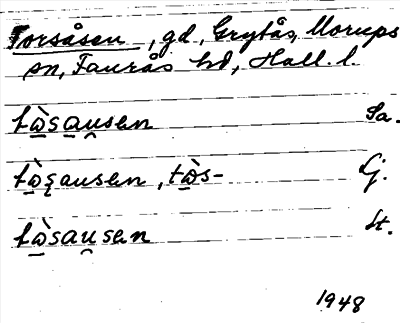 Torsåsen, gd, Grytås, Morups
sn, Faurås hd, Hall. l.
tὼ̲sa̲u̯sen Sa.
tὼ̲s̨ausen, tὼ̲s- Lj.
tὼ̲sau̯sen St.
1948